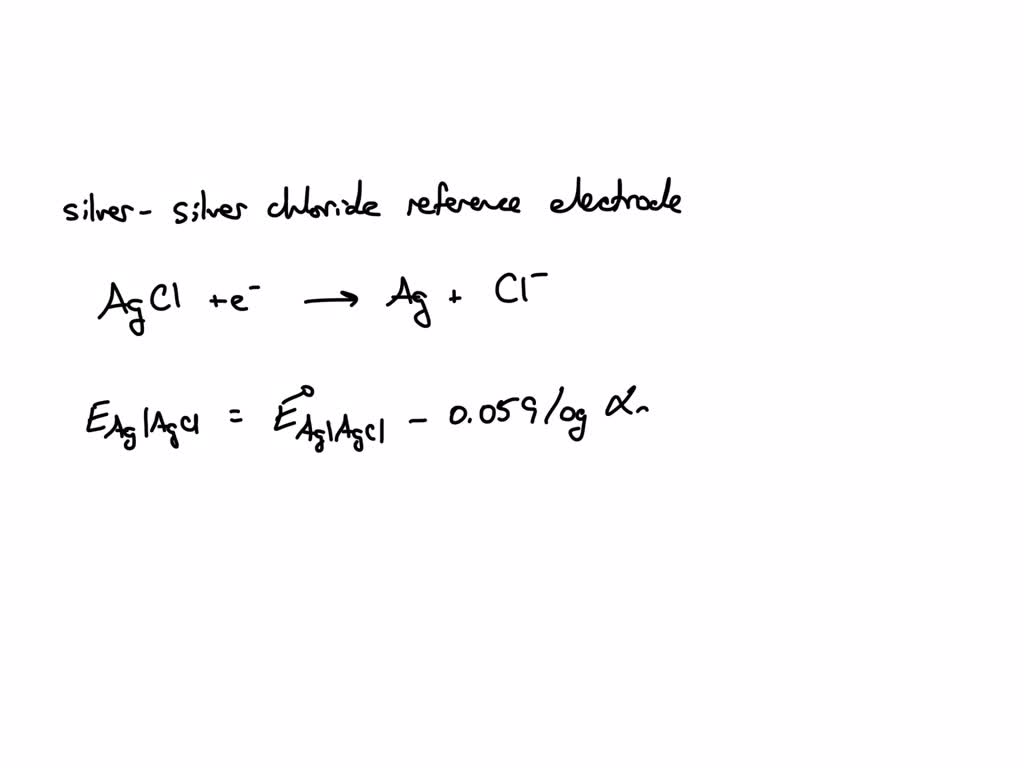 silver - silver chloride reference electrode
AgCl + e⁻ → Ag + Cl⁻
E_Ag|AgCl = E°_Ag|AgCl - 0.059 log α